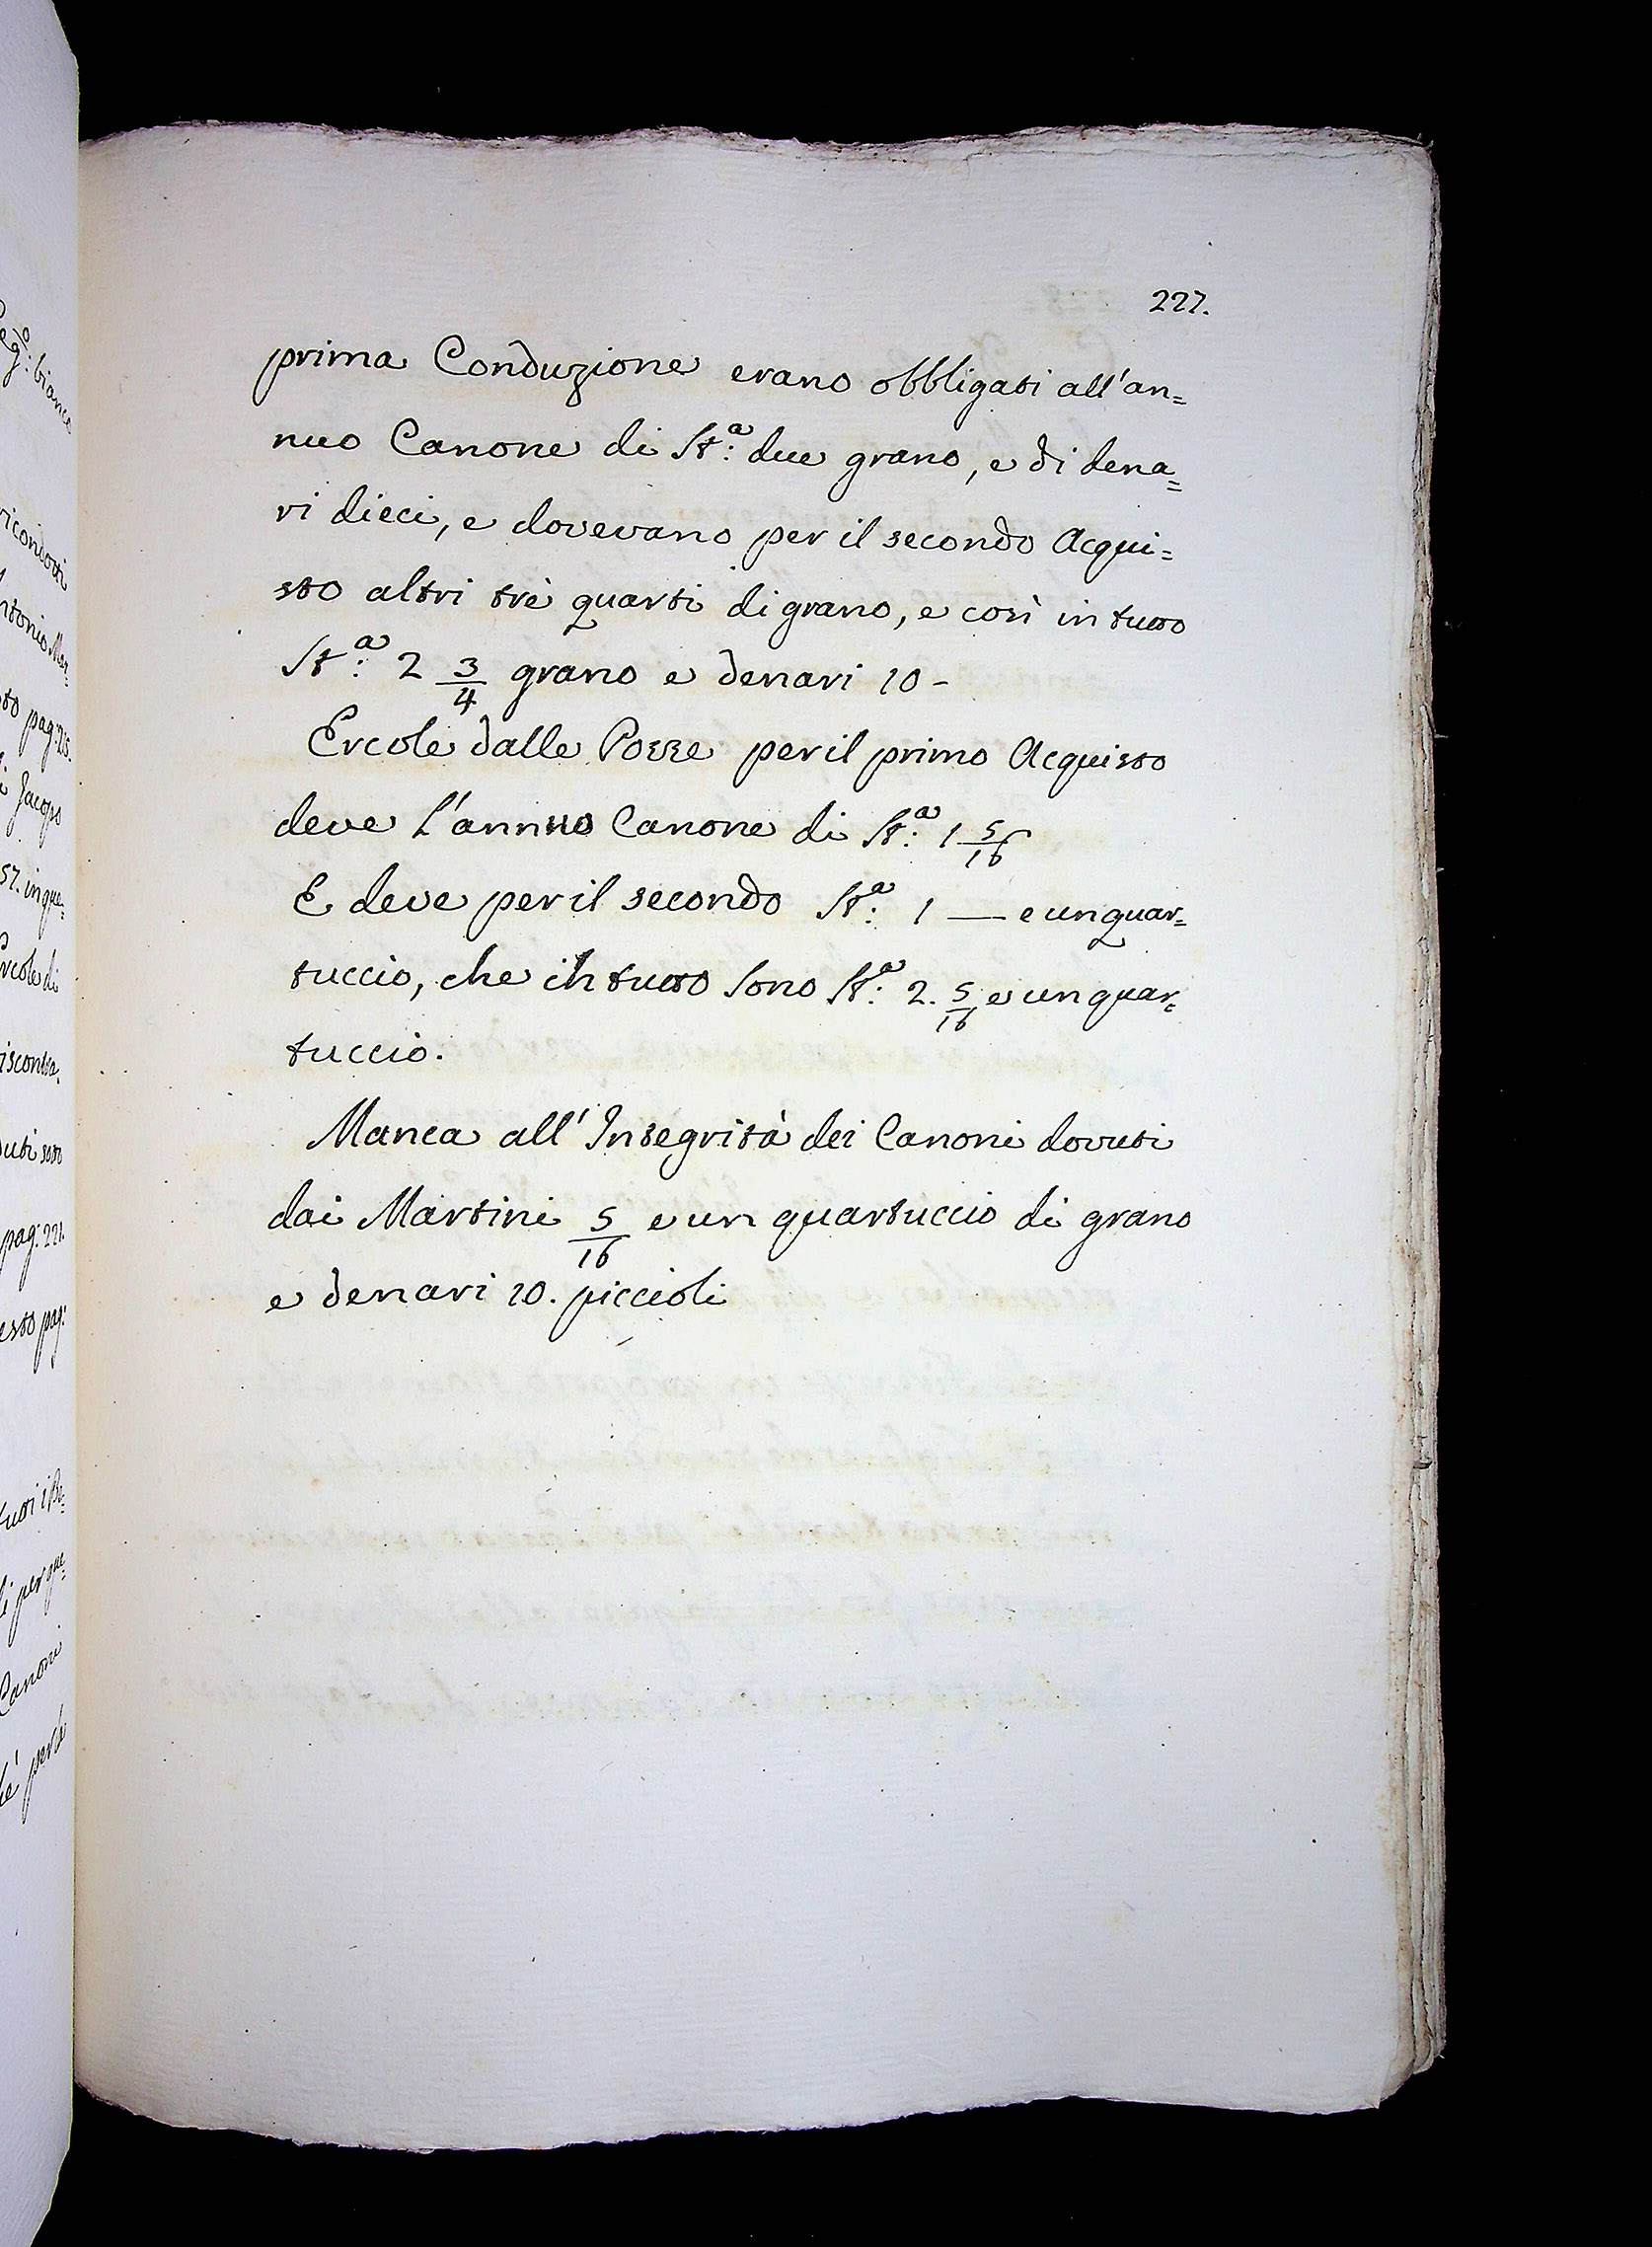 227.
prima Conduzione erano obbligati all'an=
nuo Canone di St.ª due grano, e di dena=
ri dieci, e dovevano per il secondo Acqui=
sto altri trè quarti di grano, e così in tutto
St.ª 2 3/4 grano e denari 10-
Ercole dalle Pozze per il primo Acquisto
deve l'annuo Canone di St.ª 1 5/16
E deve per il secondo St.ª 1 — e un quar=
tuccio, che in tutto sono St.ª 2. 5/16 e un quar=
tuccio.
Manca all'Integrità dei Canoni dovuti
dai Martini 5/16 e un quartuccio di grano
e denari 10. piccioli